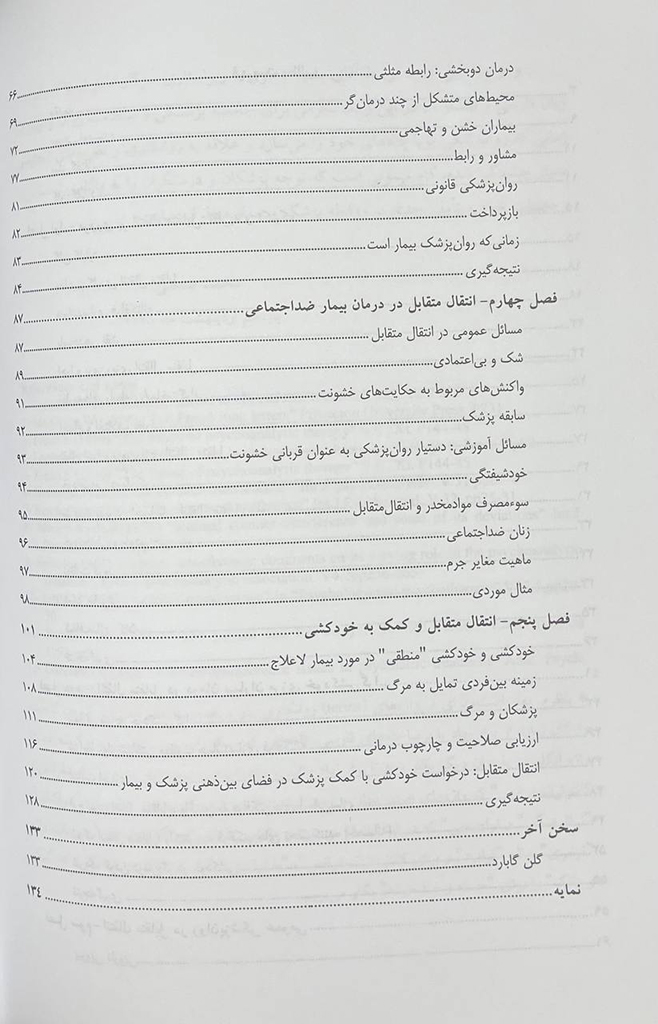 درمان دوبخشی: رابطه مثلثی ۶۶
محیط‌های متشکل از چند درمان‌گر ۶۹
بیماران خشن و تهاجمی ۷۲
مشاور و رابط ۷۷
روان‌پزشکی قانونی ۸۱
بازپرداخت ۸۲
زمانی‌که روان‌پزشک بیمار است ۸۳
نتیجه‌گیری ۸۴
فصل چهارم- انتقال متقابل در درمان بیمار ضداجتماعی ۸۷
مسائل عمومی در انتقال متقابل ۸۷
شک و بی‌اعتمادی ۸۹
واکنش‌های مربوط به حکایت‌های خشونت ۹۱
سابقه پزشک ۹۲
مسائل آموزشی: دستیار روان‌پزشکی به عنوان قربانی خشونت ۹۳
خودشیفتگی ۹۴
سوءمصرف موادمخدر و انتقال‌متقابل ۹۵
زنان ضداجتماعی ۹۶
ماهیت مغایر جرم ۹۷
مثال موردی ۹۸
فصل پنجم- انتقال متقابل و کمک به خودکشی ۱۰۱
خودکشی و خودکشی "منطقی" در مورد بیمار لاعلاج ۱۰۴
زمینه بین‌فردی تمایل به مرگ ۱۰۸
پزشکان و مرگ ۱۱۱
ارزیابی صلاحیت و چارچوب درمانی ۱۱۶
انتقال متقابل: درخواست خودکشی با کمک پزشک در فضای بین‌ذهنی پزشک و بیمار ۱۲۰
نتیجه‌گیری ۱۲۸
سخن آخر ۱۳۳
گلن گابارد ۱۳۳
نمایه ۱۳۴